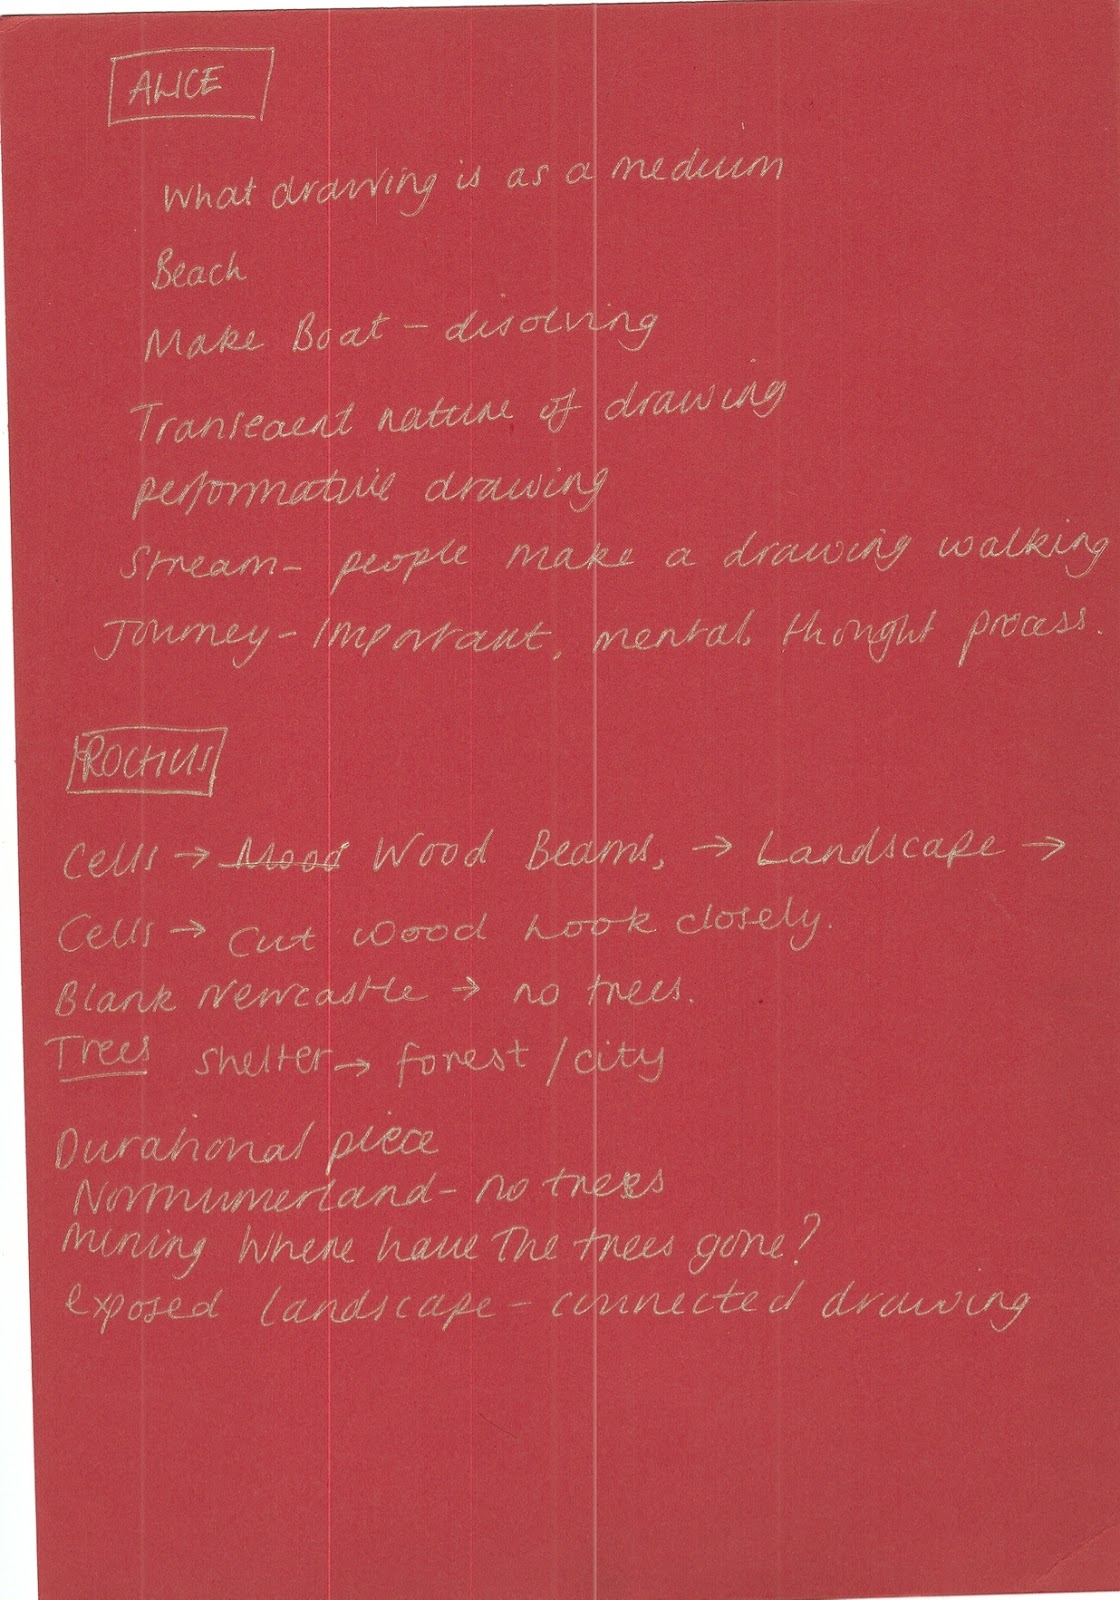 ALICE
What drawing is as a medium
Beach
Make Boat - disolving
Transeaent nature of drawing
performative drawing
Stream - people make a drawing walking
Journey - Important, mental thought process.
ROCHUS
Cells → Mood Wood Beams, → Landscape →
Cells → Cut wood Look closely.
Blank Newcastle → no trees.
Trees shelter → forest / city
Durational piece
- no trees
Mining Where have The trees gone?
exposed landscape - connected drawing